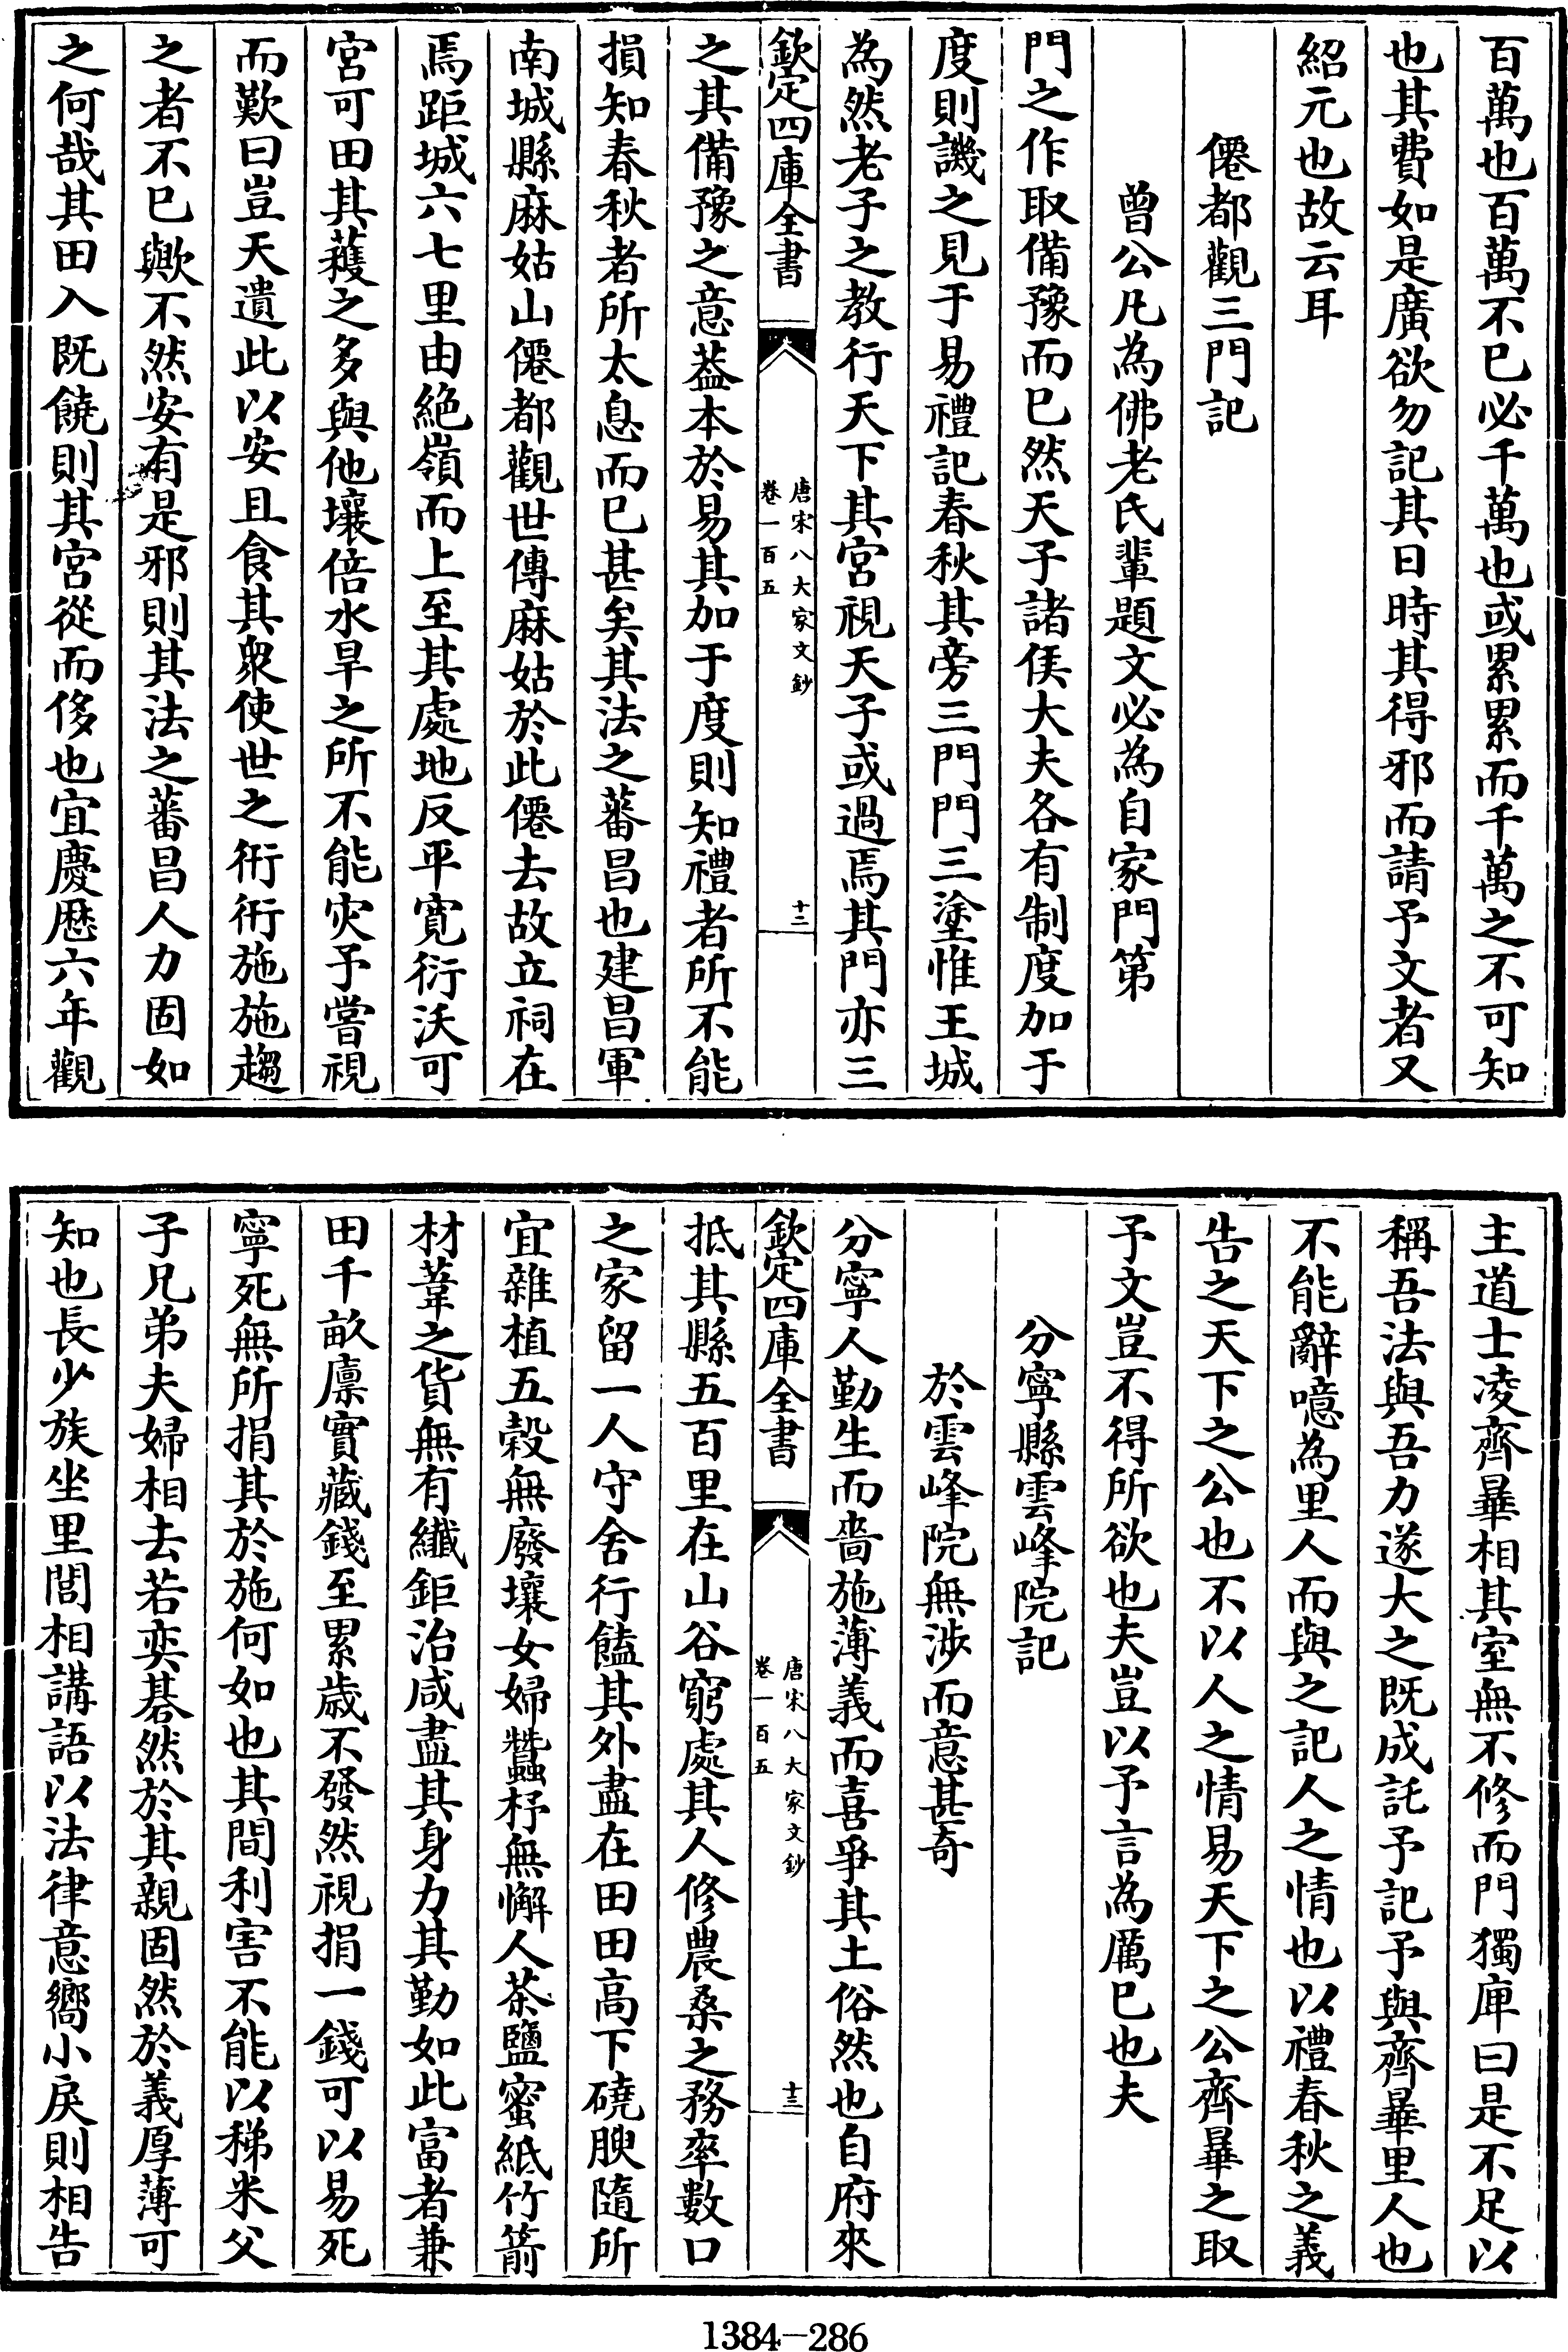 百萬也百萬不已必千萬也或累累而千萬之不可知
也其費如是廣欲勿記其日時其得邪而請予文者又
紹元也故云耳
僊都觀三門記
曾公凡為佛老氏輩題文必為自家門第
門之作取備豫而已然天子諸侯大夫各有制度加于
度則譏之見于易禮記春秋其旁三門門三塗惟王城
為然老子之教行天下其宮視天子或過焉其門亦三
欽定四庫全書
唐宋八大家文鈔
卷一百五
十二
之其備豫之意葢本於易其加于度則知禮者所不能
損知春秋者所太息而已甚矣其法之蕃昌也建昌軍
南城縣麻姑山僊都觀世傳麻姑於此僊去故立祠在
焉距城六七里由絶嶺而上至其處地反平寛衍沃可
宮可田其穫之多與他壤倍水旱之所不能災予嘗視
而歎曰豈天遺此以安且食其衆使世之衎衎施施趨
之者不已歟不然安有是邪則其法之蕃昌人力固如
之何哉其田入既饒則其宮從而侈也宜慶厯六年觀
主道士凌齊曅相其室無不修而門獨庳曰是不足以
稱吾法與吾力遂大之既成託予記予與齊曅里人也
不能辭噫為里人而與之記人之情也以禮春秋之義
告之天下之公也不以人之情易天下之公齊曅之取
予文豈不得所欲也夫豈以予言為厲已也夫
分寧縣雲峰院記
於雲峰院無涉而意甚奇
分寧人勤生而嗇施薄義而喜爭其土俗然也自府來
欽定四庫全書
唐宋八大家文鈔
卷一百五
十三
抵其縣五百里在山谷窮處其人修農桑之務率數口
之家留一人守舍行饁其外盡在田田高下磽腴隨所
宜雜植五榖無廢壤女婦蠶杼無懈人茶鹽蜜紙竹箭
材葦之貨無有纖鉅治咸盡其身力其勤如此富者兼
田千畝廪實藏錢至累歲不發然視捐一錢可以易死
寧死無所捐其於施何如也其間利害不能以稊米父
子兄弟夫婦相去若奕棊然於其親固然於義厚薄可
知也長少族坐里閭相講語以法律意嚮小戾則相告
1384—286